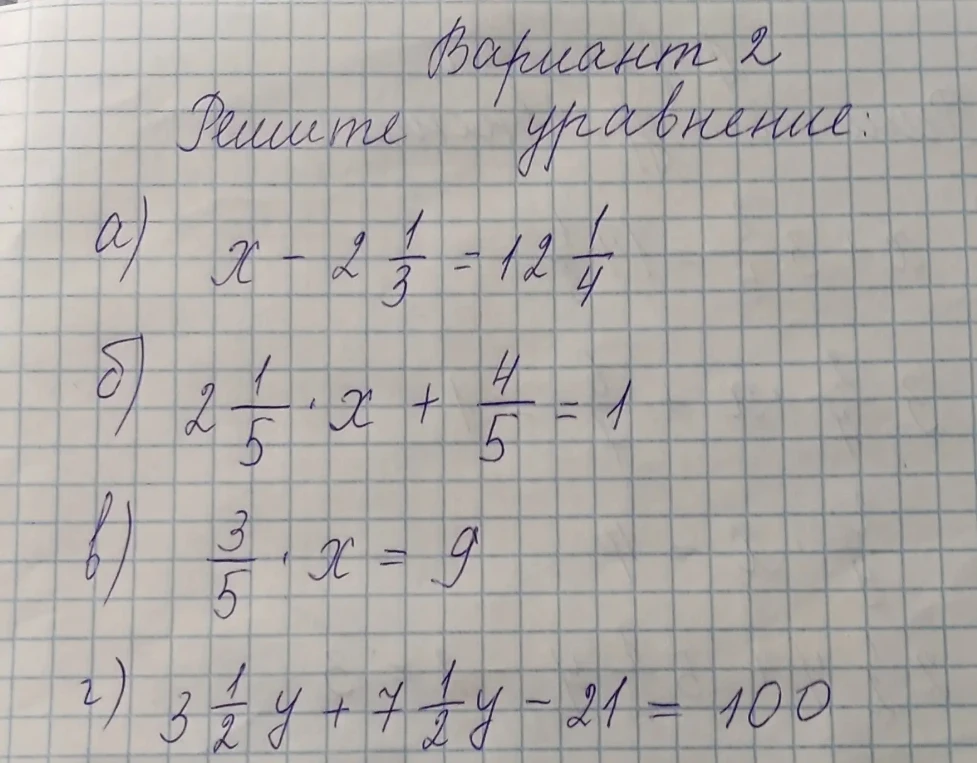 Вариант 2
Решите уравнение:
а) x - 2 1/3 = 12 1/4
б) 2 1/5 · x + 4/5 = 1
в) 3/5 · x = 9
г) 3 1/2 y + 7 1/2 y - 21 = 100